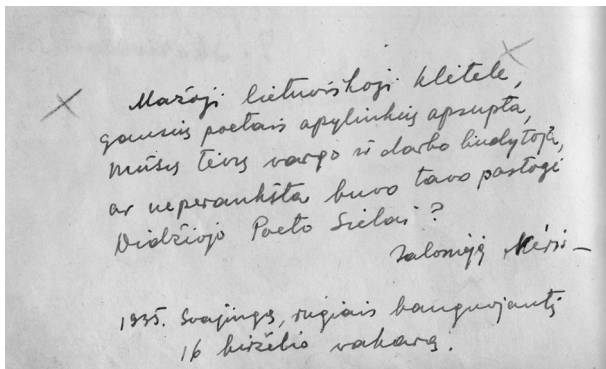 Mažoji lietuviškoji klėtele,
gausių poetais apylinkių apsupta,
mūsų tėvų vargo ir darbo liudytoja,
ar neperankšta buvo tavo pastogė
Didžiojo Poeto Sielai?
Salomėja Nėris –
1935. Svajingą, rugiais banguojantį
16 birželio vakarą.